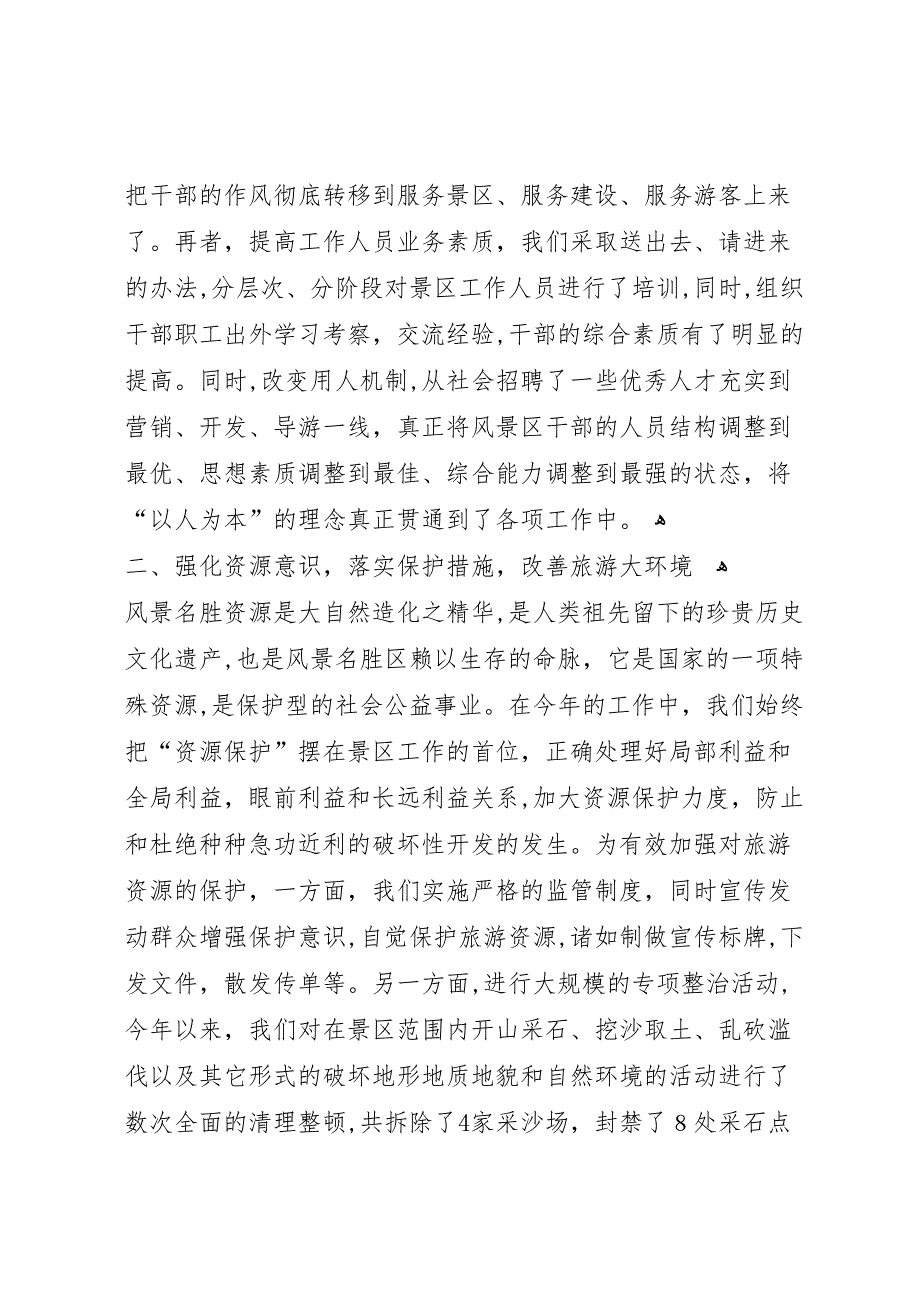 把干部的作风彻底转移到服务景区、服务建设、服务游客上来
了。再者，提高工作人员业务素质，我们采取送出去、请进来
的办法,分层次、分阶段对景区工作人员进行了培训,同时,组织
干部职工出外学习考察，交流经验,干部的综合素质有了明显的
提高。同时,改变用人机制,从社会招聘了一些优秀人才充实到
营销、开发、导游一线，真正将风景区干部的人员结构调整到
最优、思想素质调整到最佳、综合能力调整到最强的状态，将
“以人为本”的理念真正贯通到了各项工作中。 ﻫ
二、强化资源意识，落实保护措施，改善旅游大环境 ﻫ
风景名胜资源是大自然造化之精华,是人类祖先留下的珍贵历史
文化遗产,也是风景名胜区赖以生存的命脉，它是国家的一项特
殊资源,是保护型的社会公益事业。在今年的工作中，我们始终
把“资源保护”摆在景区工作的首位，正确处理好局部利益和
全局利益，眼前利益和长远利益关系,加大资源保护力度，防止
和杜绝种种急功近利的破坏性开发的发生。为有效加强对旅游
资源的保护，一方面，我们实施严格的监管制度，同时宣传发
动群众增强保护意识,自觉保护旅游资源,诸如制做宣传标牌,下
发文件，散发传单等。另一方面,进行大规模的专项整治活动,
今年以来，我们对在景区范围内开山采石、挖沙取土、乱砍滥
伐以及其它形式的破坏地形地质地貌和自然环境的活动进行了
数次全面的清理整顿,共拆除了4家采沙场，封禁了８处采石点